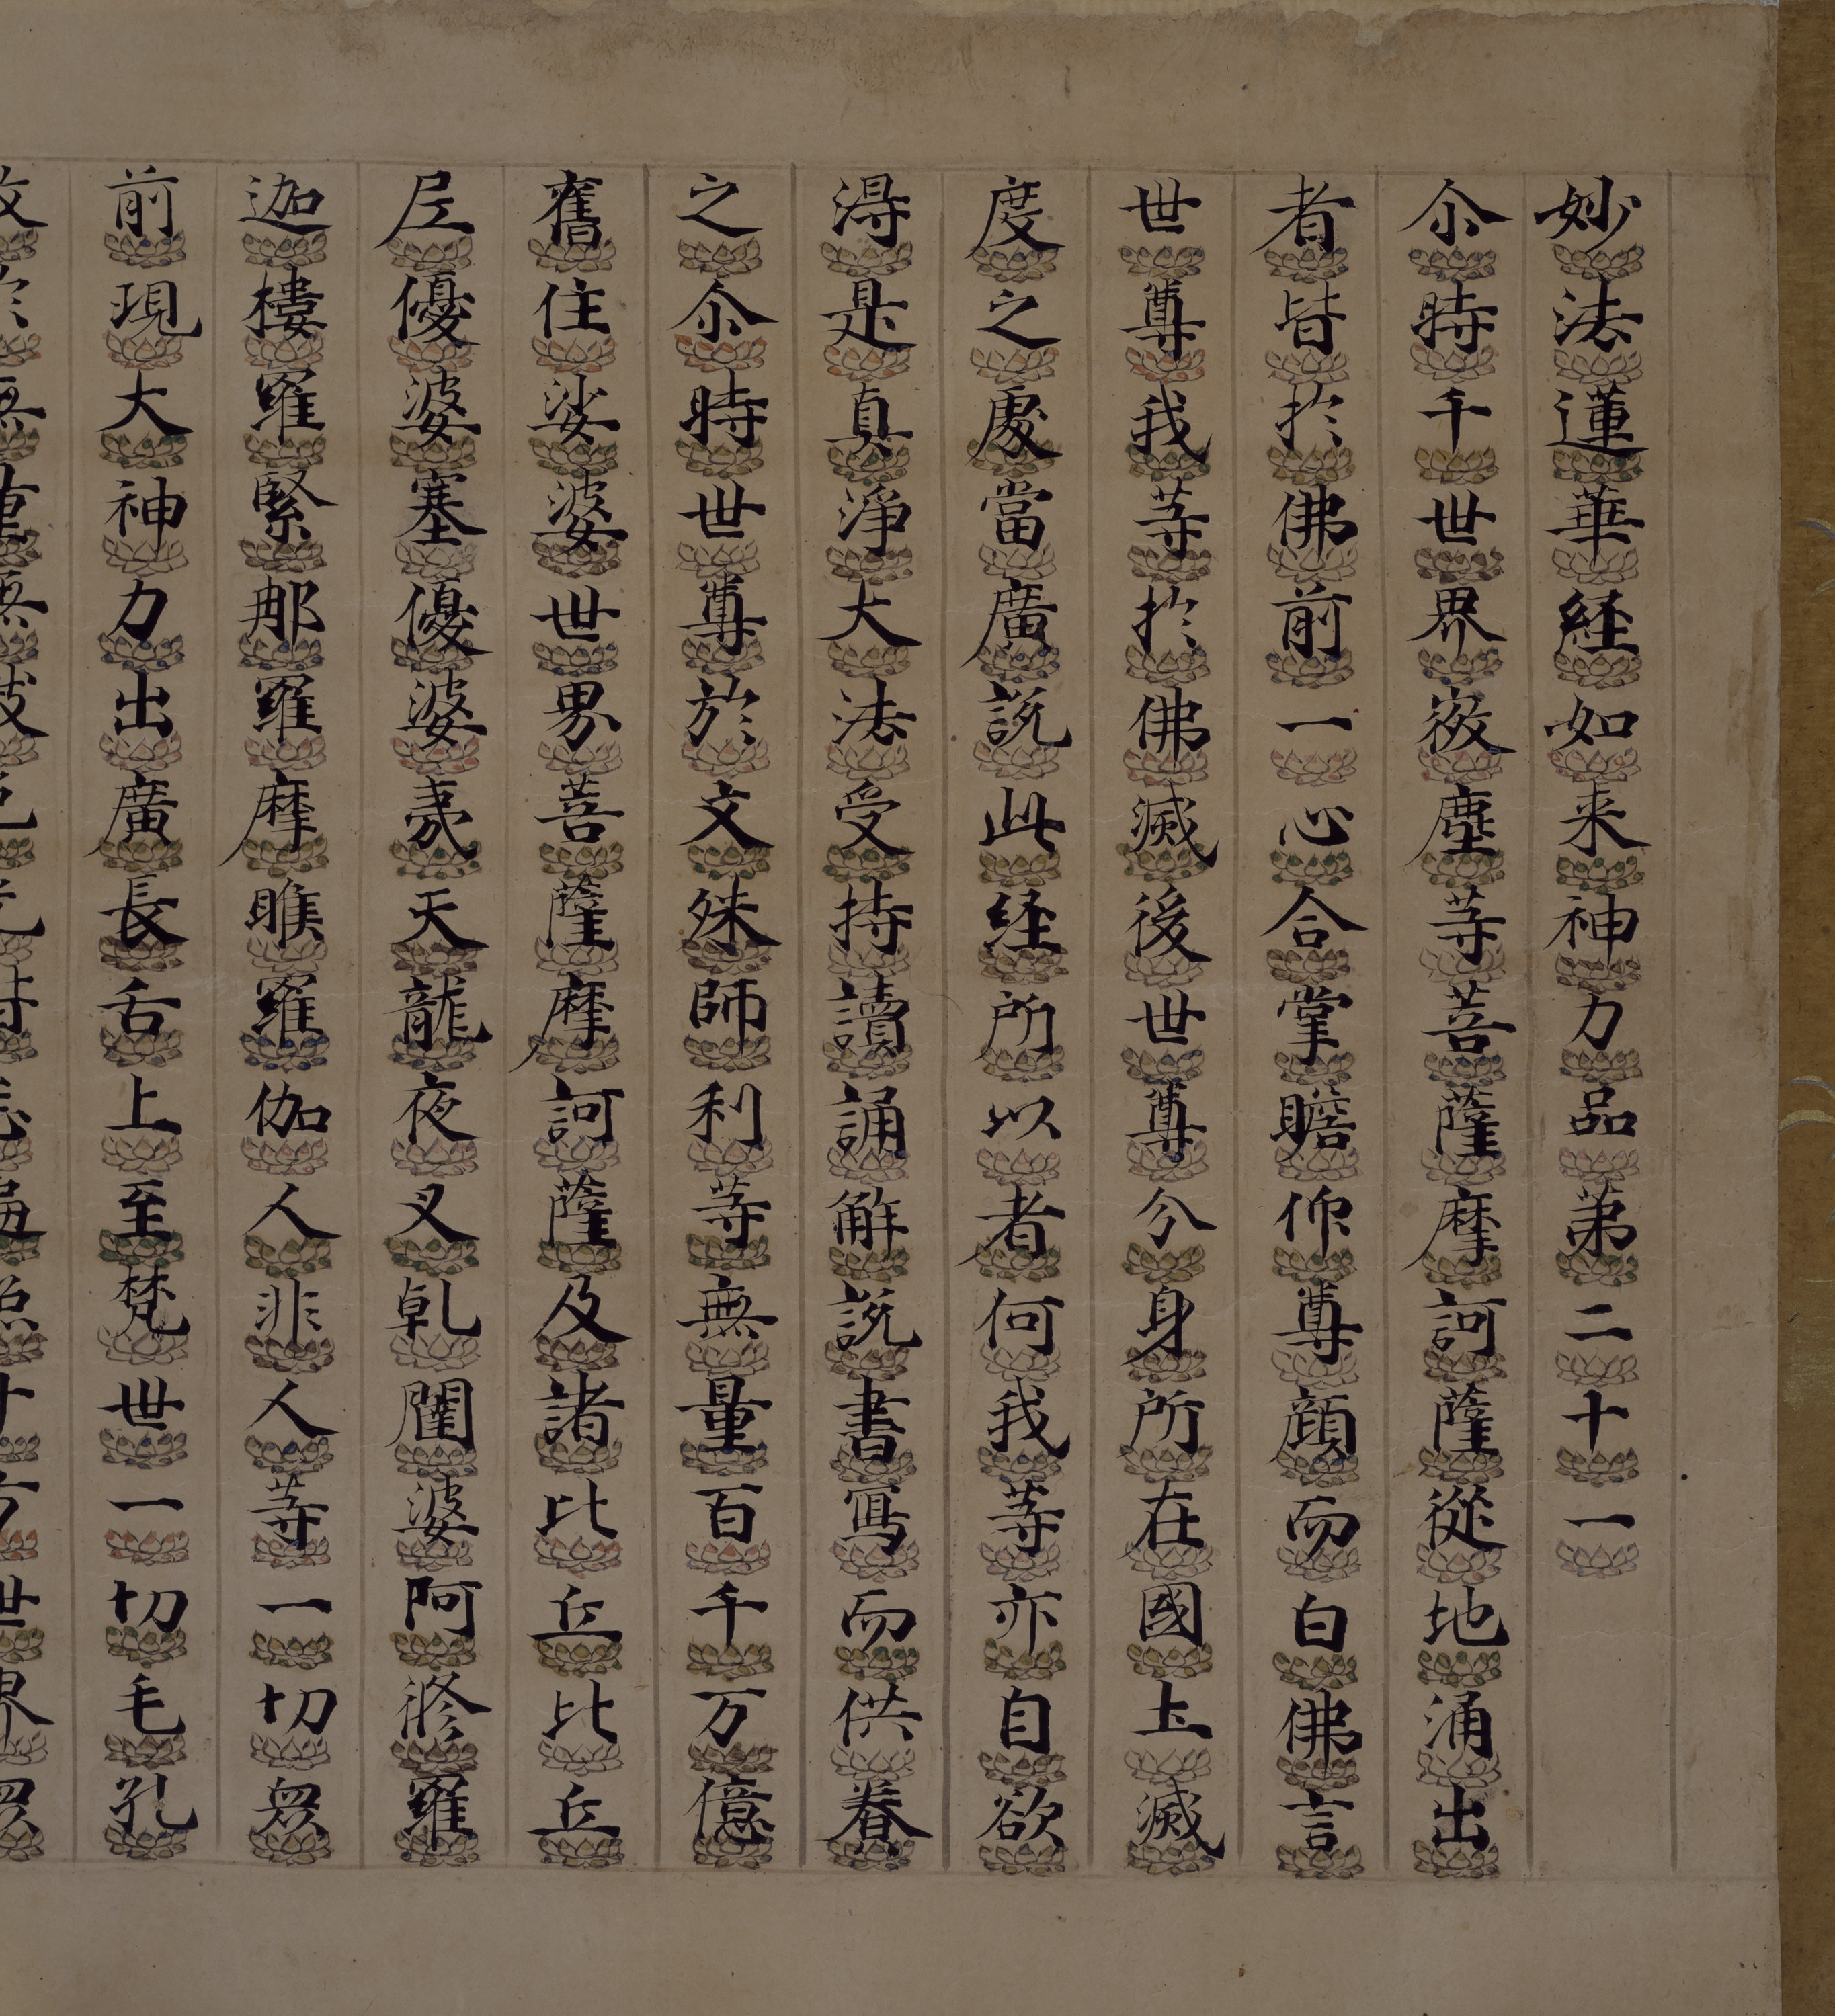 妙法蓮華経如来神力品第二十一
尒時千世界微塵等菩薩摩訶薩從地涌出
者皆於佛前一心合掌瞻仰尊顔而白佛言
世尊我等於佛滅後世尊分身所在國土滅
度之處當廣説此経所以者何我等亦自欲
得是真淨大法受持讀誦解説書寫而供養
之尒時世尊於文殊師利等無量百千万億
舊住娑婆世界菩薩摩訶薩及諸比丘比丘
尼優婆塞優婆夷天龍夜叉乹闥婆阿脩羅
迦樓羅緊那羅摩睺羅伽人非人等一切衆
前現大神力出廣長舌上至梵世一切毛孔
放於無量無數色光皆悉遍照十方世界衆